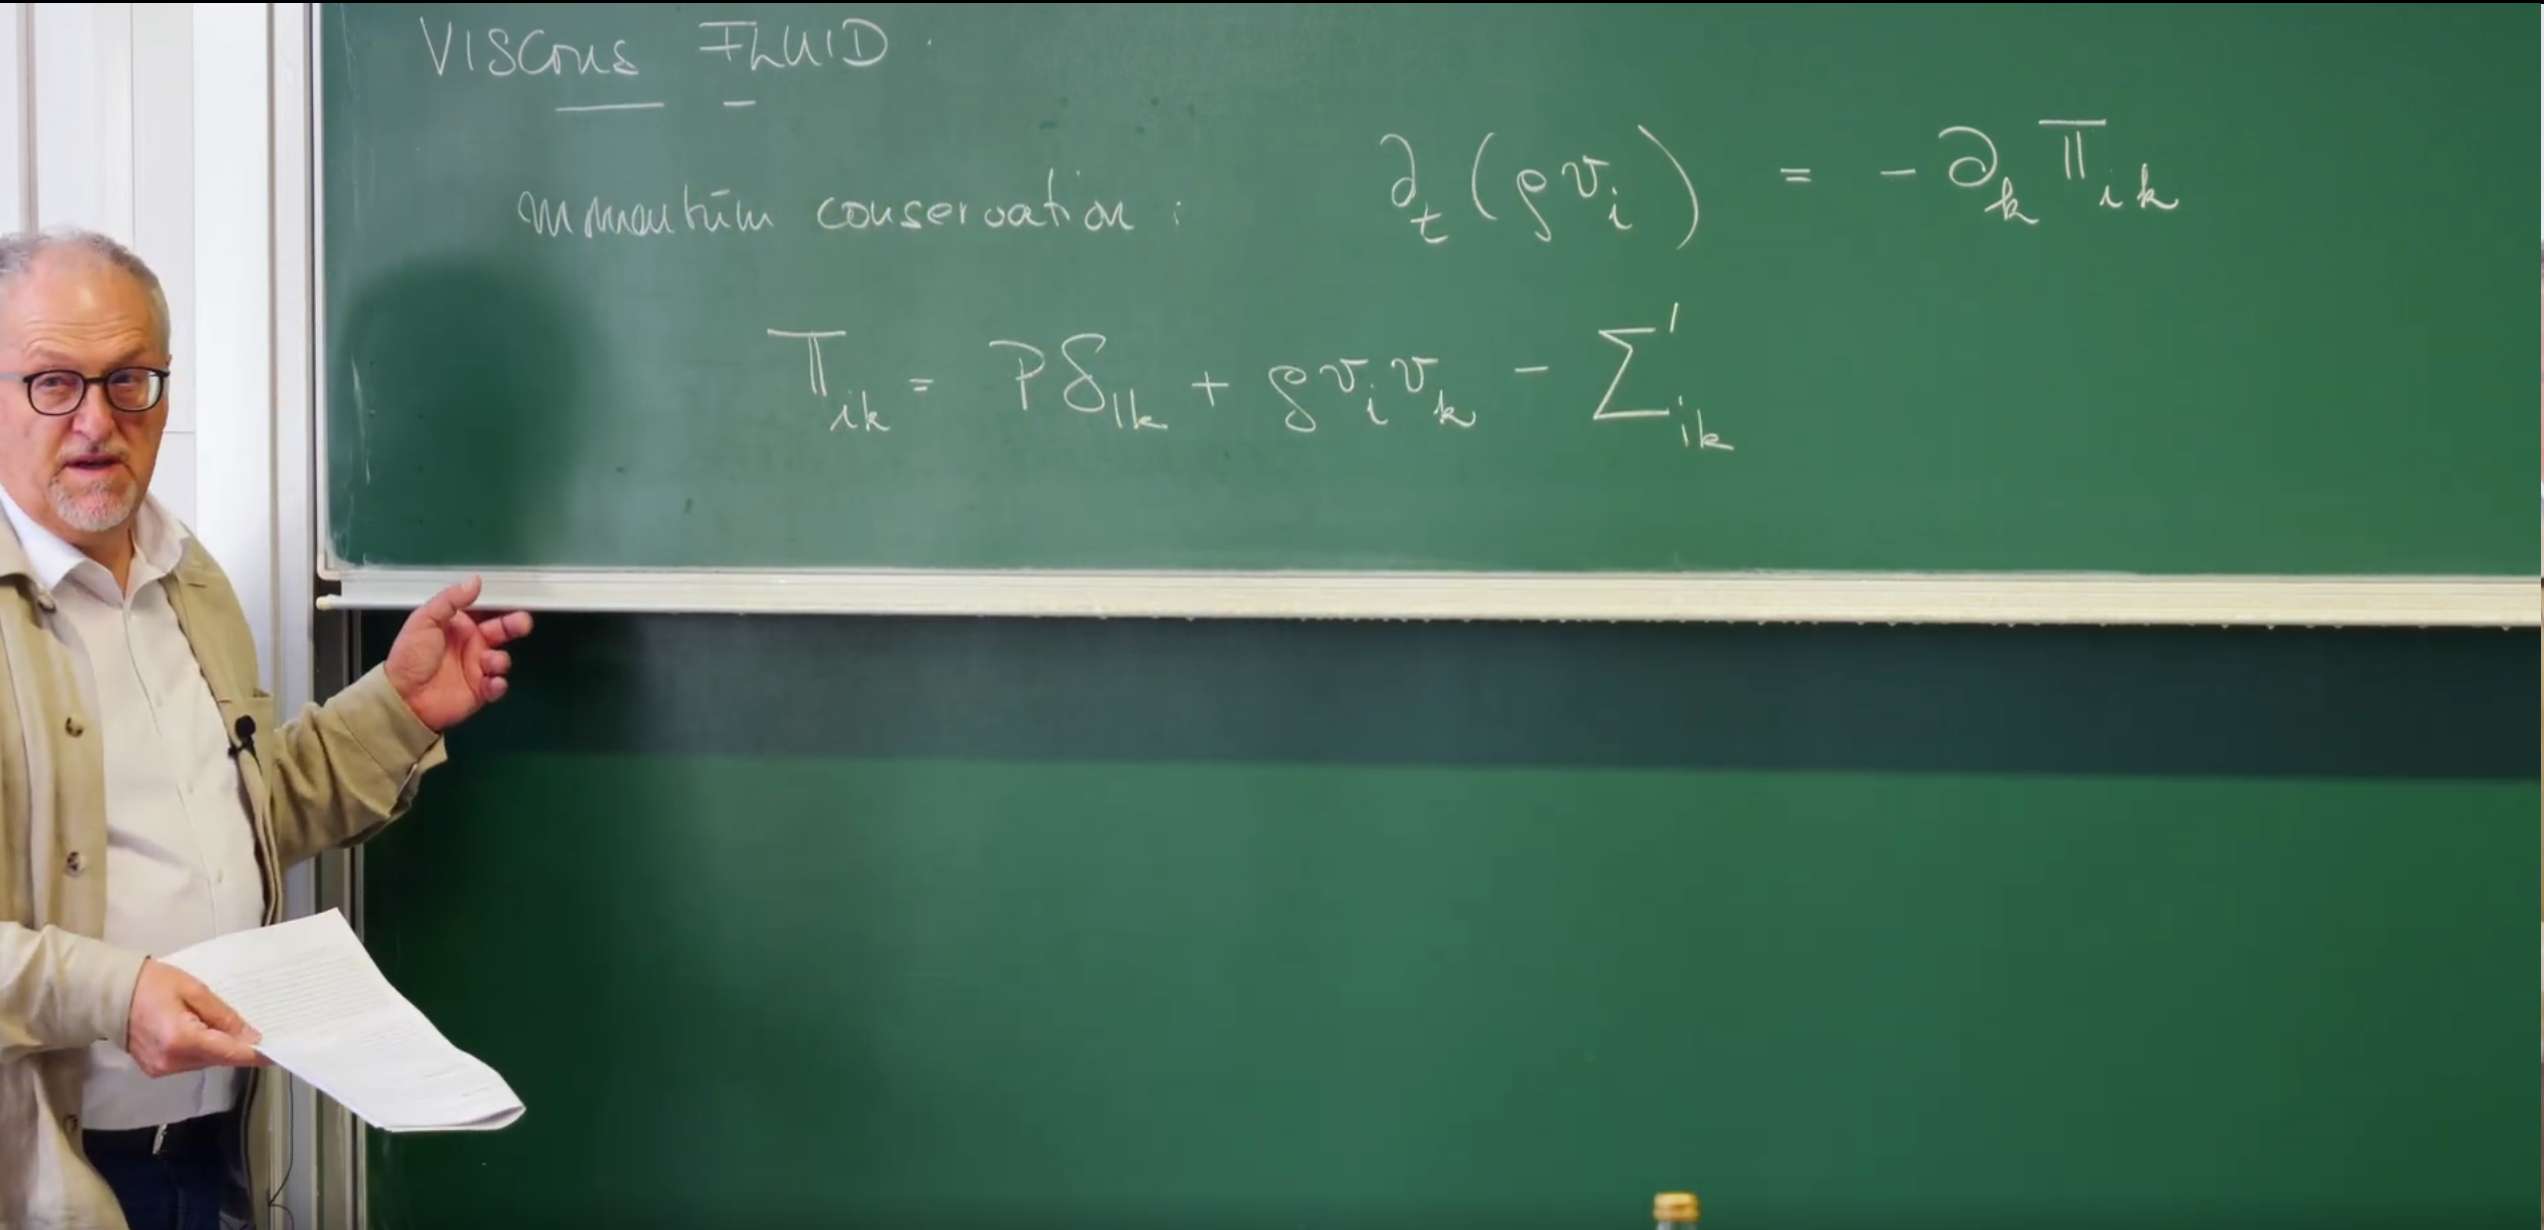 VISCOUS FLUID.
momentum conservation: ∂ₜ(ρvᵢ) = - ∂ₖ Πᵢₖ
Πᵢₖ = Pδᵢₖ + ρvᵢvₖ - Σ'ᵢₖ